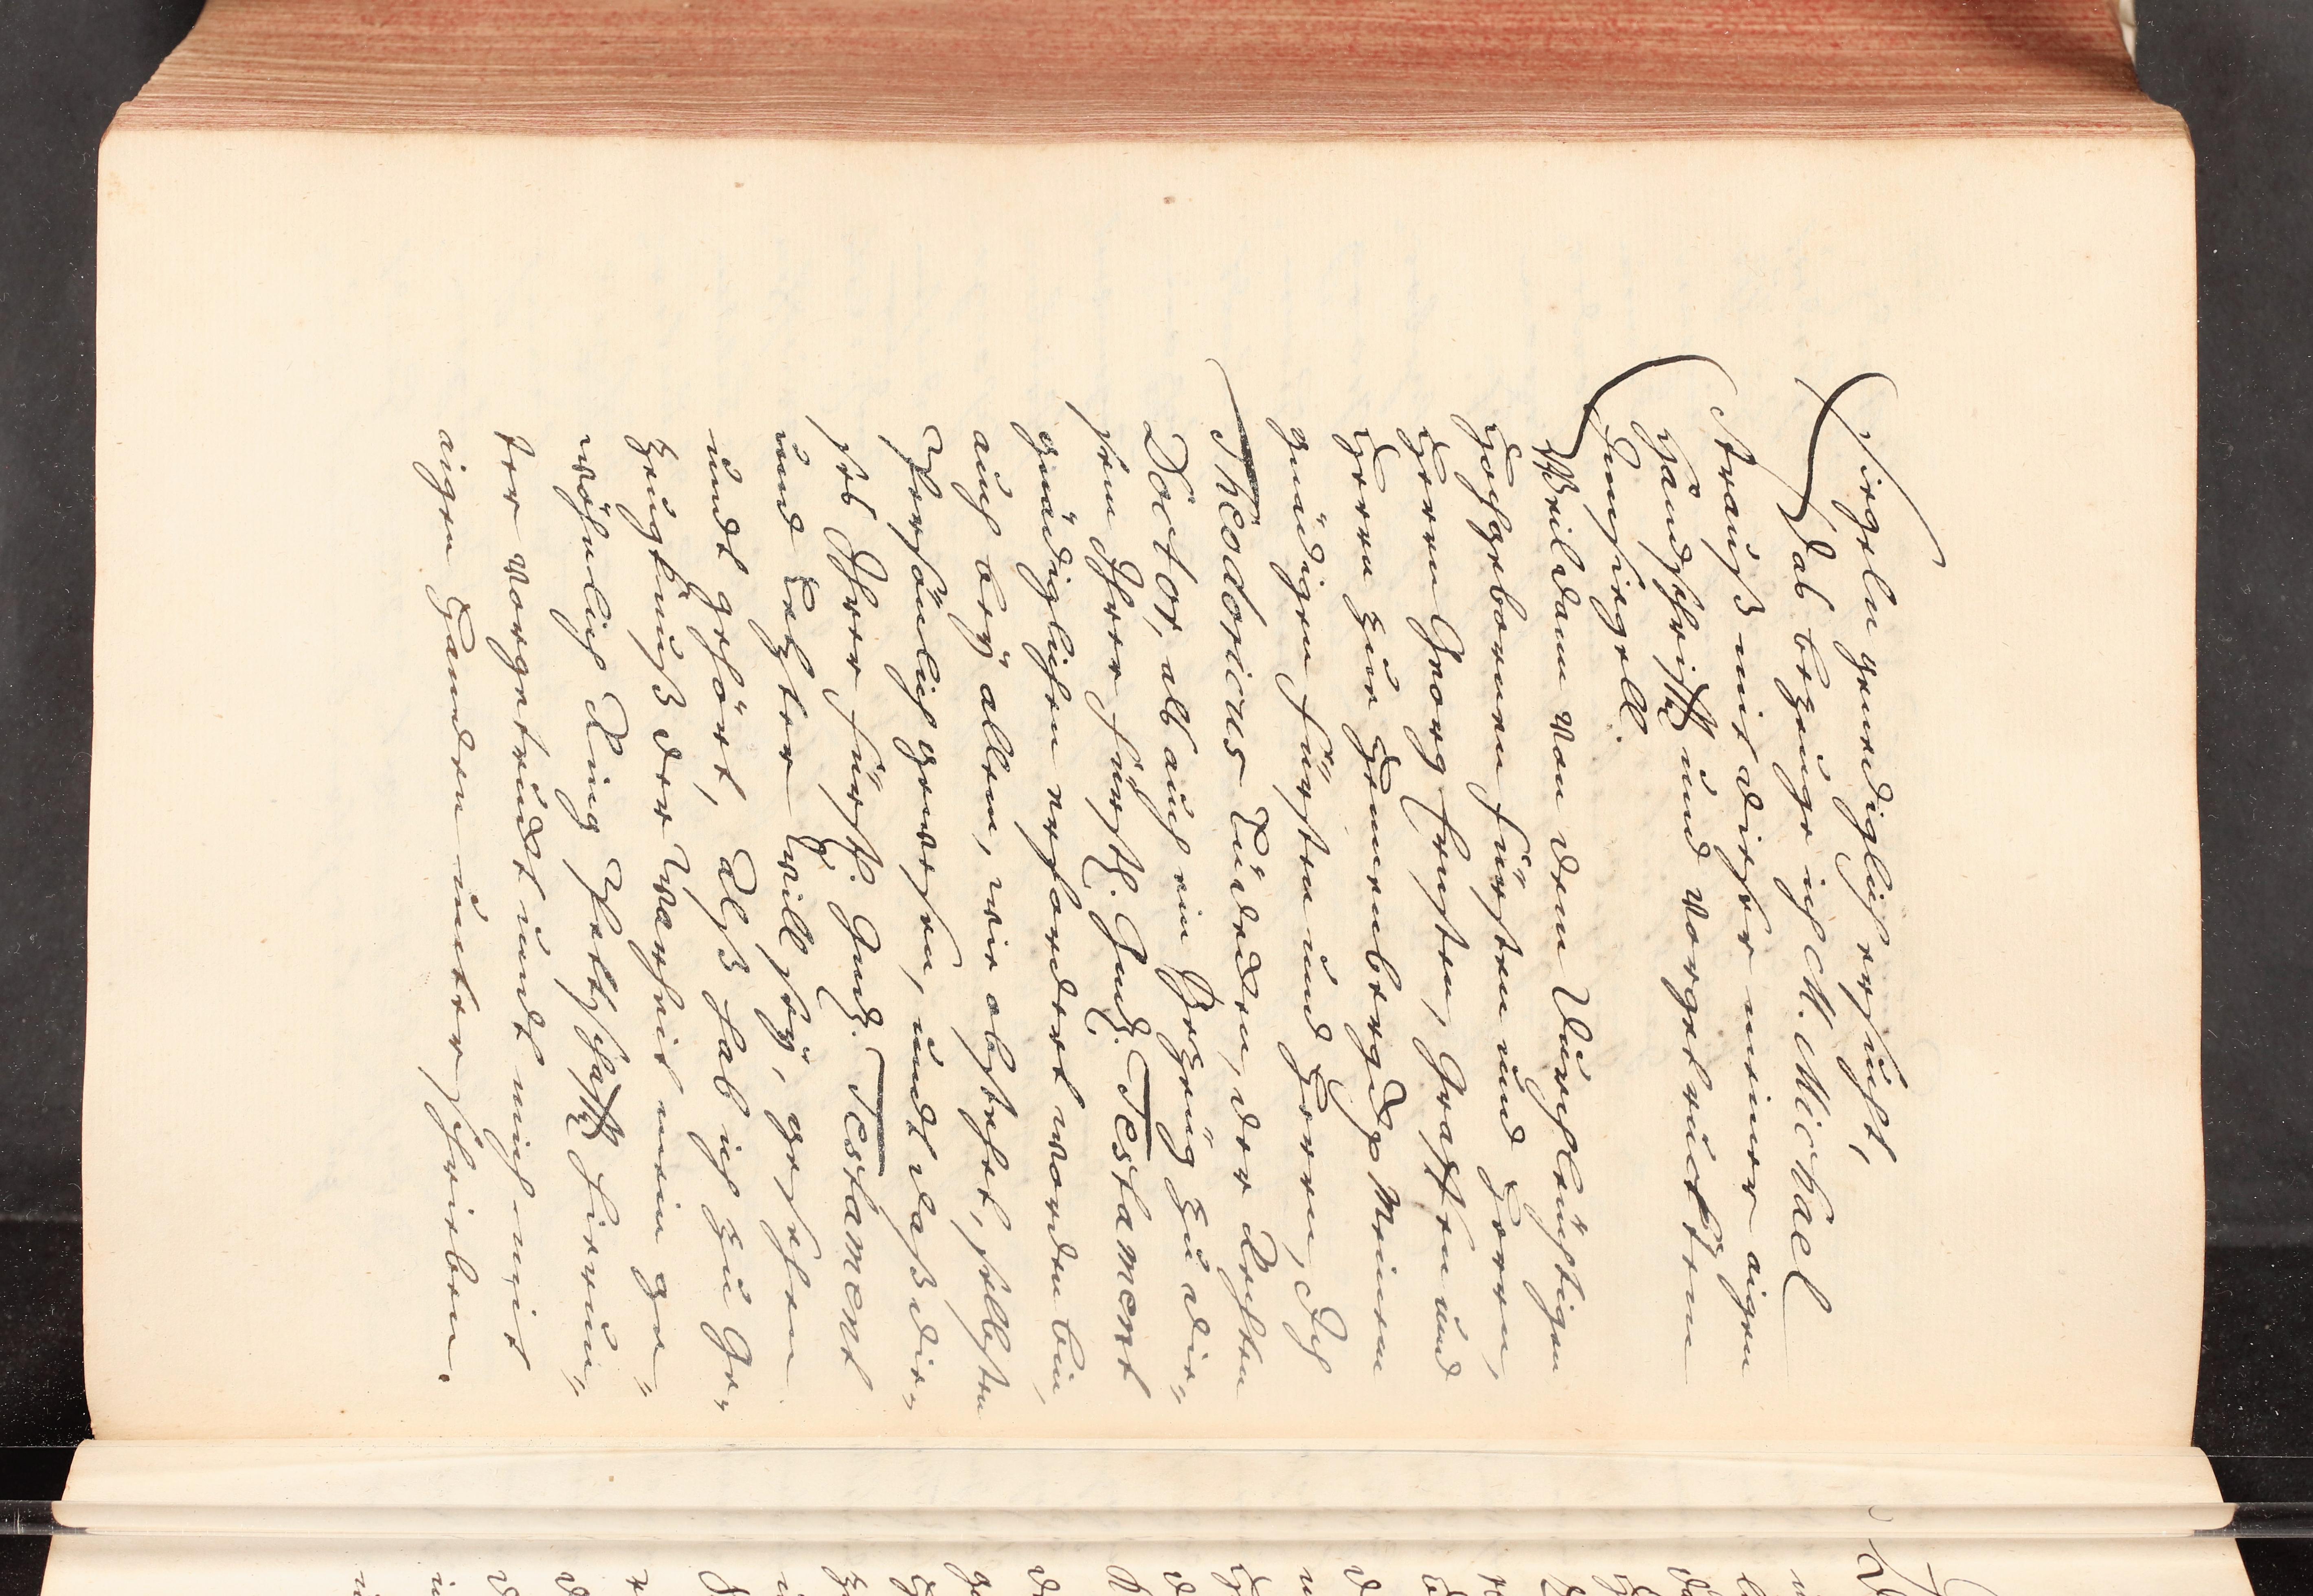 siegeln genediglich ersucht,
Das bezeuge ich M. Michael
Strauß mit dieser meiner aigen
Handschrifft und vorgetruckten
Hensiegell.
Weil dann von dem Durchleuchtigen
Hochgebornen fürsten und Herrn,
Herrn Georg Ernsten, Graffen und
Herrn zue Hennenbergk p Meinem
gnedigen fürsten und Herrn, Ich
Theodoricus Lüdeken, der Rechten
Doctor, als auch ein Gezeug zu die-
sem Ihrer fürstl. Gnd. Testament
gnädiglichen erfordert worden bin,
auch bey allem, wie obstehet, selbsten
Persönlich gewesen, undt das die-
ses Ihrer fürstl. Gnd. Testament
und Lezter will sey, gesehen
undt gehört, Alß hab ich zu Ge-
zeugknuß der Warheit mein ge-
wöhnlich Ring Pettschafft hierun-
ter vorgetruckt undt mich mit
aigen Handen unterschrieben.